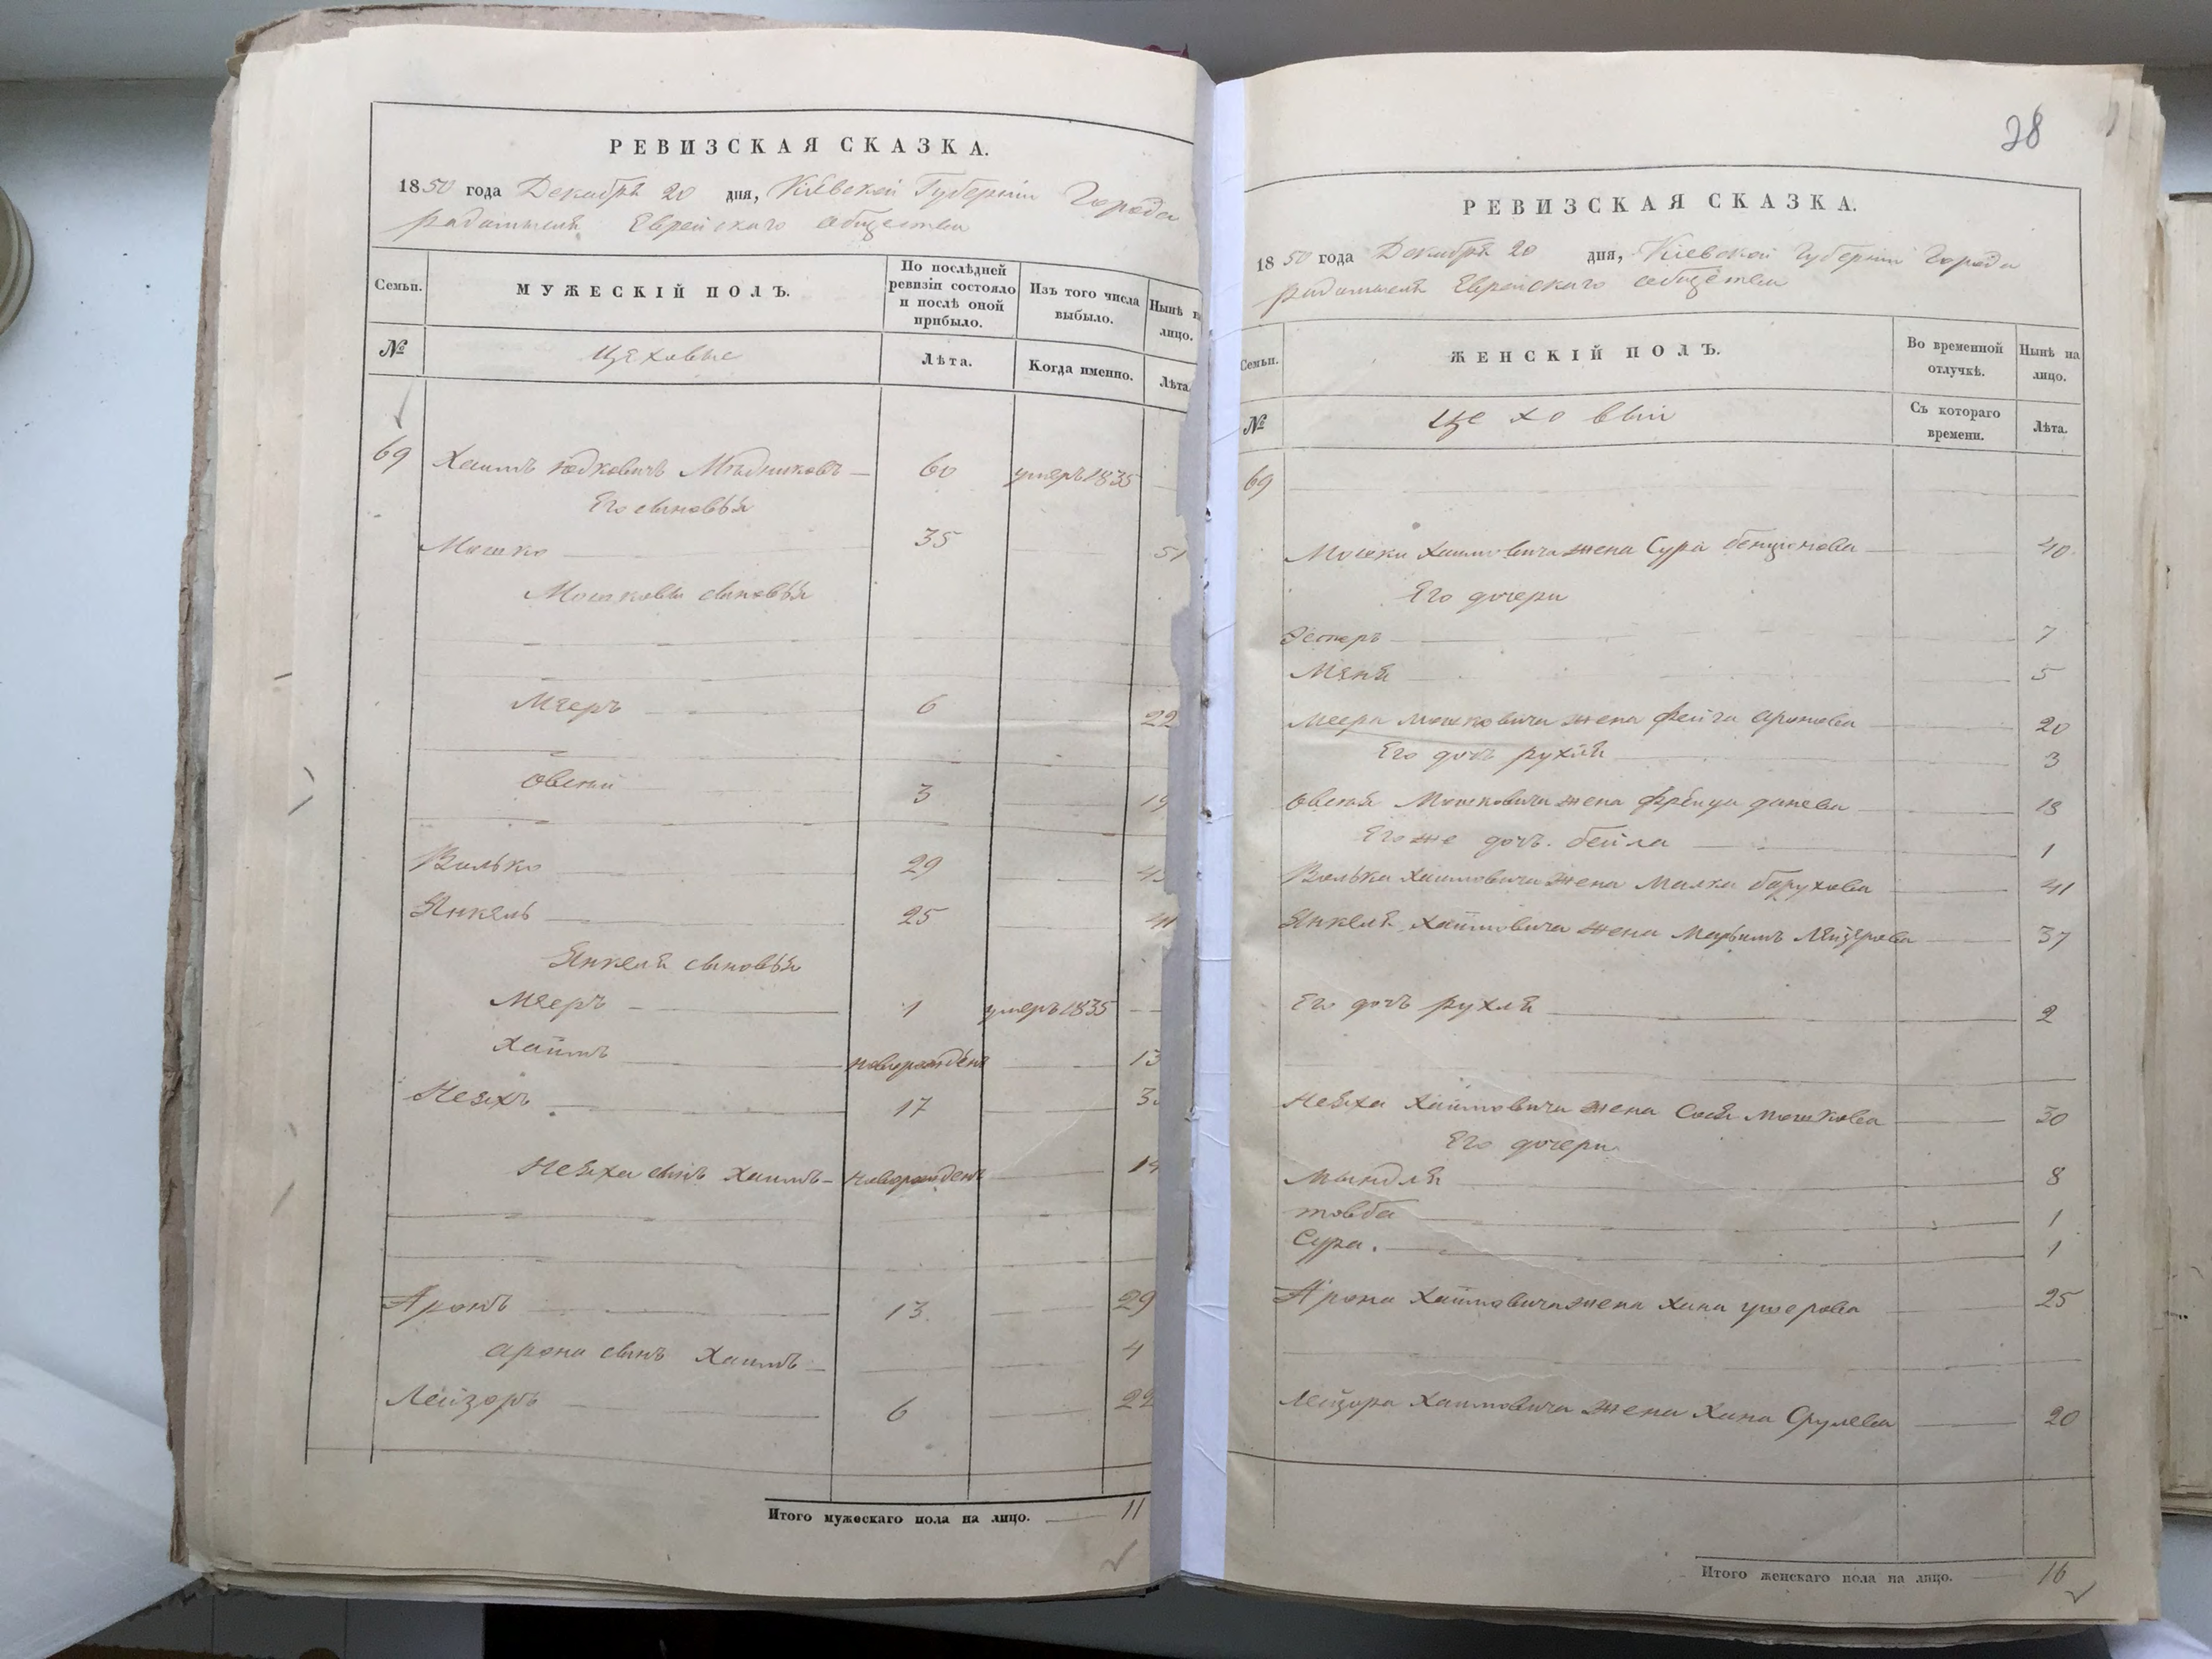 РЕВИЗСКАЯ СКАЗКА.
1850 года Декабря 20 дня, Кіевской Губерніи Города
Радомысля Еврейскаго общества
Семьи.
МУЖЕСКІЙ ПОЛЪ.
По послѣдней
ревизіи состояло
и послѣ оной
прибыло.
Изъ того числа
выбыло.
Нынѣ
лицо.
№
Цеховые
Лѣта.
Когда именно.
Лѣта
69 Хаимъ Юдковичъ Мѣдниковъ 60 умеръ 1835
Его сыновья
Мошко 35 51
Мошковы сыновья
Мееръ 6 22
Овсей 3 19
Волько 29 45
Янкель 25 41
Янкеля сыновья
Мееръ 1 умеръ 1835
Хаимъ новорожденъ 13
Незхъ 17 3
сынъ Хаимъ новорожденъ 14
Аронъ 13 29
Арона сынъ Хаимъ 4
Лейзоръ 6 22
Итого мужескаго пола на лицо. 11
28
РЕВИЗСКАЯ СКАЗКА.
1850 года Декабря 20 дня, Кіевской Губерніи Города
Радомысля Еврейскаго общества
Семьи.
ЖЕНСКІЙ ПОЛЪ.
Во временной
отлучкѣ.
Нынѣ на
лицо.
№
Цеховыи
Съ котораго
времени.
Лѣта.
69
Мошки Хаимовича жена Сура Бенціонова 40
Его дочери
Эстеръ 7
Меня 5
Меера Мошковича жена Фейга Аронова 20
Его дочь Рухля 3
Овсея Мошковича жена 18
Его же дочь Бейла 1
Волька Хаимовича жена Малка Барухова 41
Янкеля Хаимовича жена Марьямъ Лейзерова 37
Его дочь Рухля 2
Хаимовича жена Сося Мошкова 30
Его дочери
Мындля 8
Товба 1
Сура. 1
Арона Хаимовича жена Хана Ушерова 25
Лейзора Хаимовича жена Хана Срулева 20
Итого женскаго пола на лицо. 16